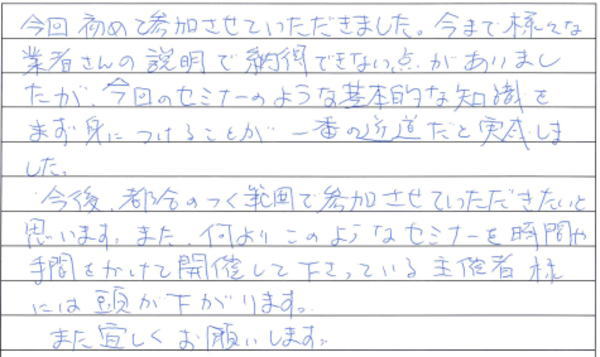 今回初めて参加させていただきました。今まで様々な
業者さんの説明で納得できない点がありまし
たが、今回のセミナーのような基本的な知識を
まず身につけることが一番の近道だと実感しま
した。
今後、都合のつく範囲で参加させていただきたいと
思います。また、何よりこのようなセミナーを時間や
手間をかけて開催して下さっている主催者様
には頭が下がります。
また宜しくお願いします。